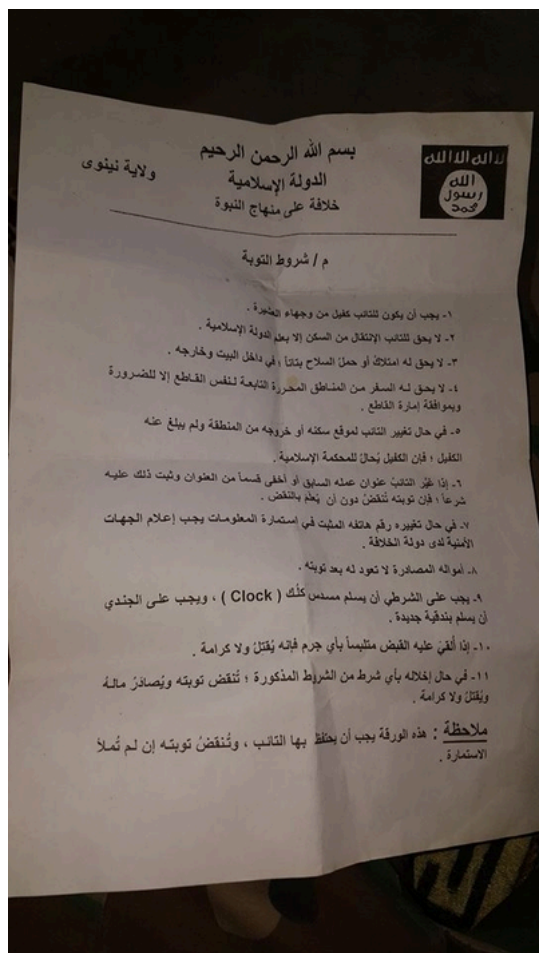 بسم الله الرحمن الرحيم
الدولة الإسلامية
خلافة على منهاج النبوة
ولاية نينوى
لا اله الا الله
الله
رسول
محمد
م / شروط التوبة
١- يجب أن يكون للتائب كفيل من وجهاء العشيرة .
٢- لا يحق للتائب الإنتقال من السكن إلا بعلم الدولة الإسلامية .
٣- لا يحق له امتلاك أو حمل السلاح بتاتاً ؛ في داخل البيت وخارجه .
٤- لا يحق له السفر من المناطق المحررة التابعة لنفس القاطع إلا للضرورة
وبموافقة إمارة القاطع .
٥- في حال تغيير التائب لموقع سكنه أو خروجه من المنطقة ولم يبلغ عنه
الكفيل ؛ فإن الكفيل يُحالُ للمحكمة الإسلامية .
٦- إذا غَيَّر التائبُ عنوان عمله السابق أو أخفى قسماً من العنوان وثبت ذلك عليه
شرعاً ؛ فإن توبته تُنقضُ دون أن يُعلَم بالنقض .
٧- في حال تغييره رقم هاتفه المثبت في إستمارة المعلومات يجب إعلام الجهات
الأمنية لدى دولة الخلافة .
٨- أمواله المصادرة لا تعود له بعد توبته .
٩- يجب على الشرطي أن يسلم مسدس كلُك ( Clock ) ، ويجب على الجندي
أن يسلم بندقية جديدة .
١٠- إذا أُلقيَ عليه القبض متلبساً بأي جرم فإنه يُقتلُ ولا كرامة .
١١- في حال إخلاله بأي شرط من الشروط المذكورة ؛ تُنقض توبته ويُصادَرُ مالهُ
ويُقتلُ ولا كرامة .
ملاحظة : هذه الورقة يجب أن يحتفظ بها التائب ، وتُنقضُ توبته إن لم تُملأ
الاستمارة .